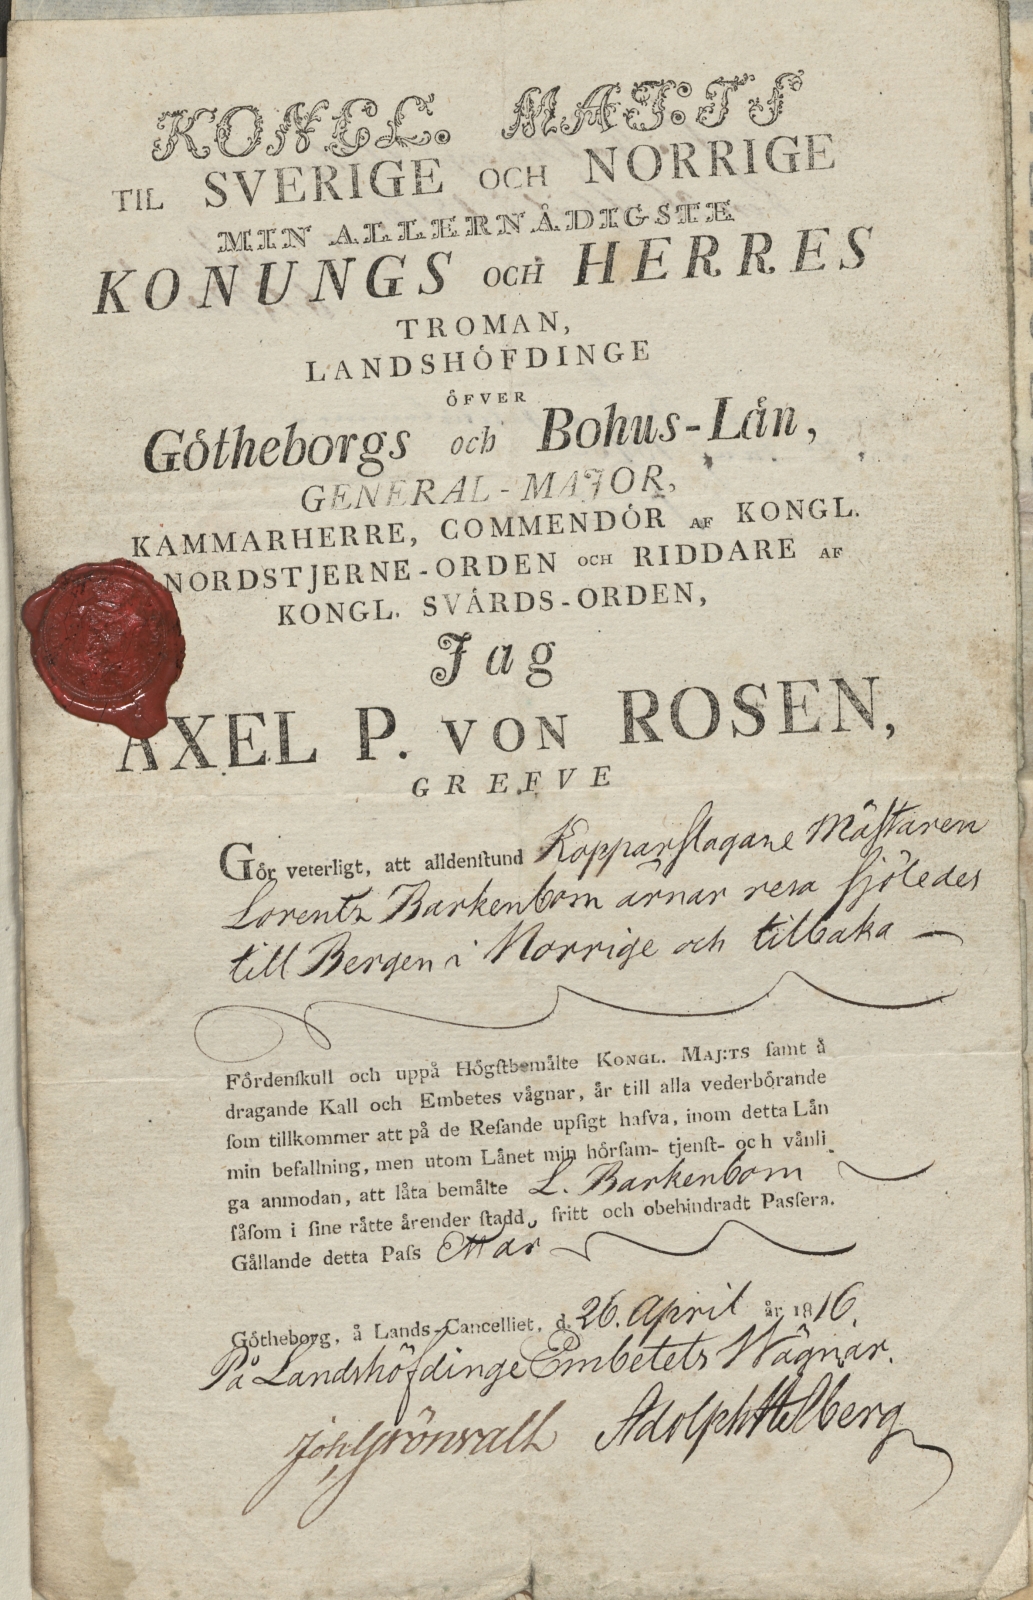 KONGL. MAJ:TS
TIL SVERIGE OCH NORRIGE
MIN ALLERNÅDIGSTE
KONUNGS OCH HERRES
TROMAN,
LANDSHÖFDINGE
ÖFVER
Götheborgs och Bohus-Län,
GENERAL-MAJOR,
KAMMARHERRE, COMMENDÖR AF KONGL.
NORDSTJERNE-ORDEN OCH RIDDARE AF
KONGL. SVÄRDS-ORDEN,
Jag
AXEL P. VON ROSEN,
GREFVE
Gör veterligt, att alldenſtund Kopparſlagare Mäſtaren
Lorentz Barkenbom ärnar resa ſjöledes
till Bergen i Norrige och tilbaka —
Fördenſkull och uppå Högſtbemälte KONGL. MAJ:TS ſamt å
dragande Kall och Embetes vägnar, är till alla vederbörande
ſom tillkommer att på de Reſande upſigt hafva, inom detta Län
min befallning, men utom Länet min hörſam- tjenſt- och vänli
ga anmodan, att låta bemälte L. Barkenbom
ſåſom i ſine rätte ärender ſtadd, fritt och obehindradt Paſſera.
Gällande detta Paſs Ett år
Götheborg, å Lands-Cancelliet, d. 26. April år 1816.
På Landshöfdinge Embetets Wägnar.
Joh Grönvall Adolph